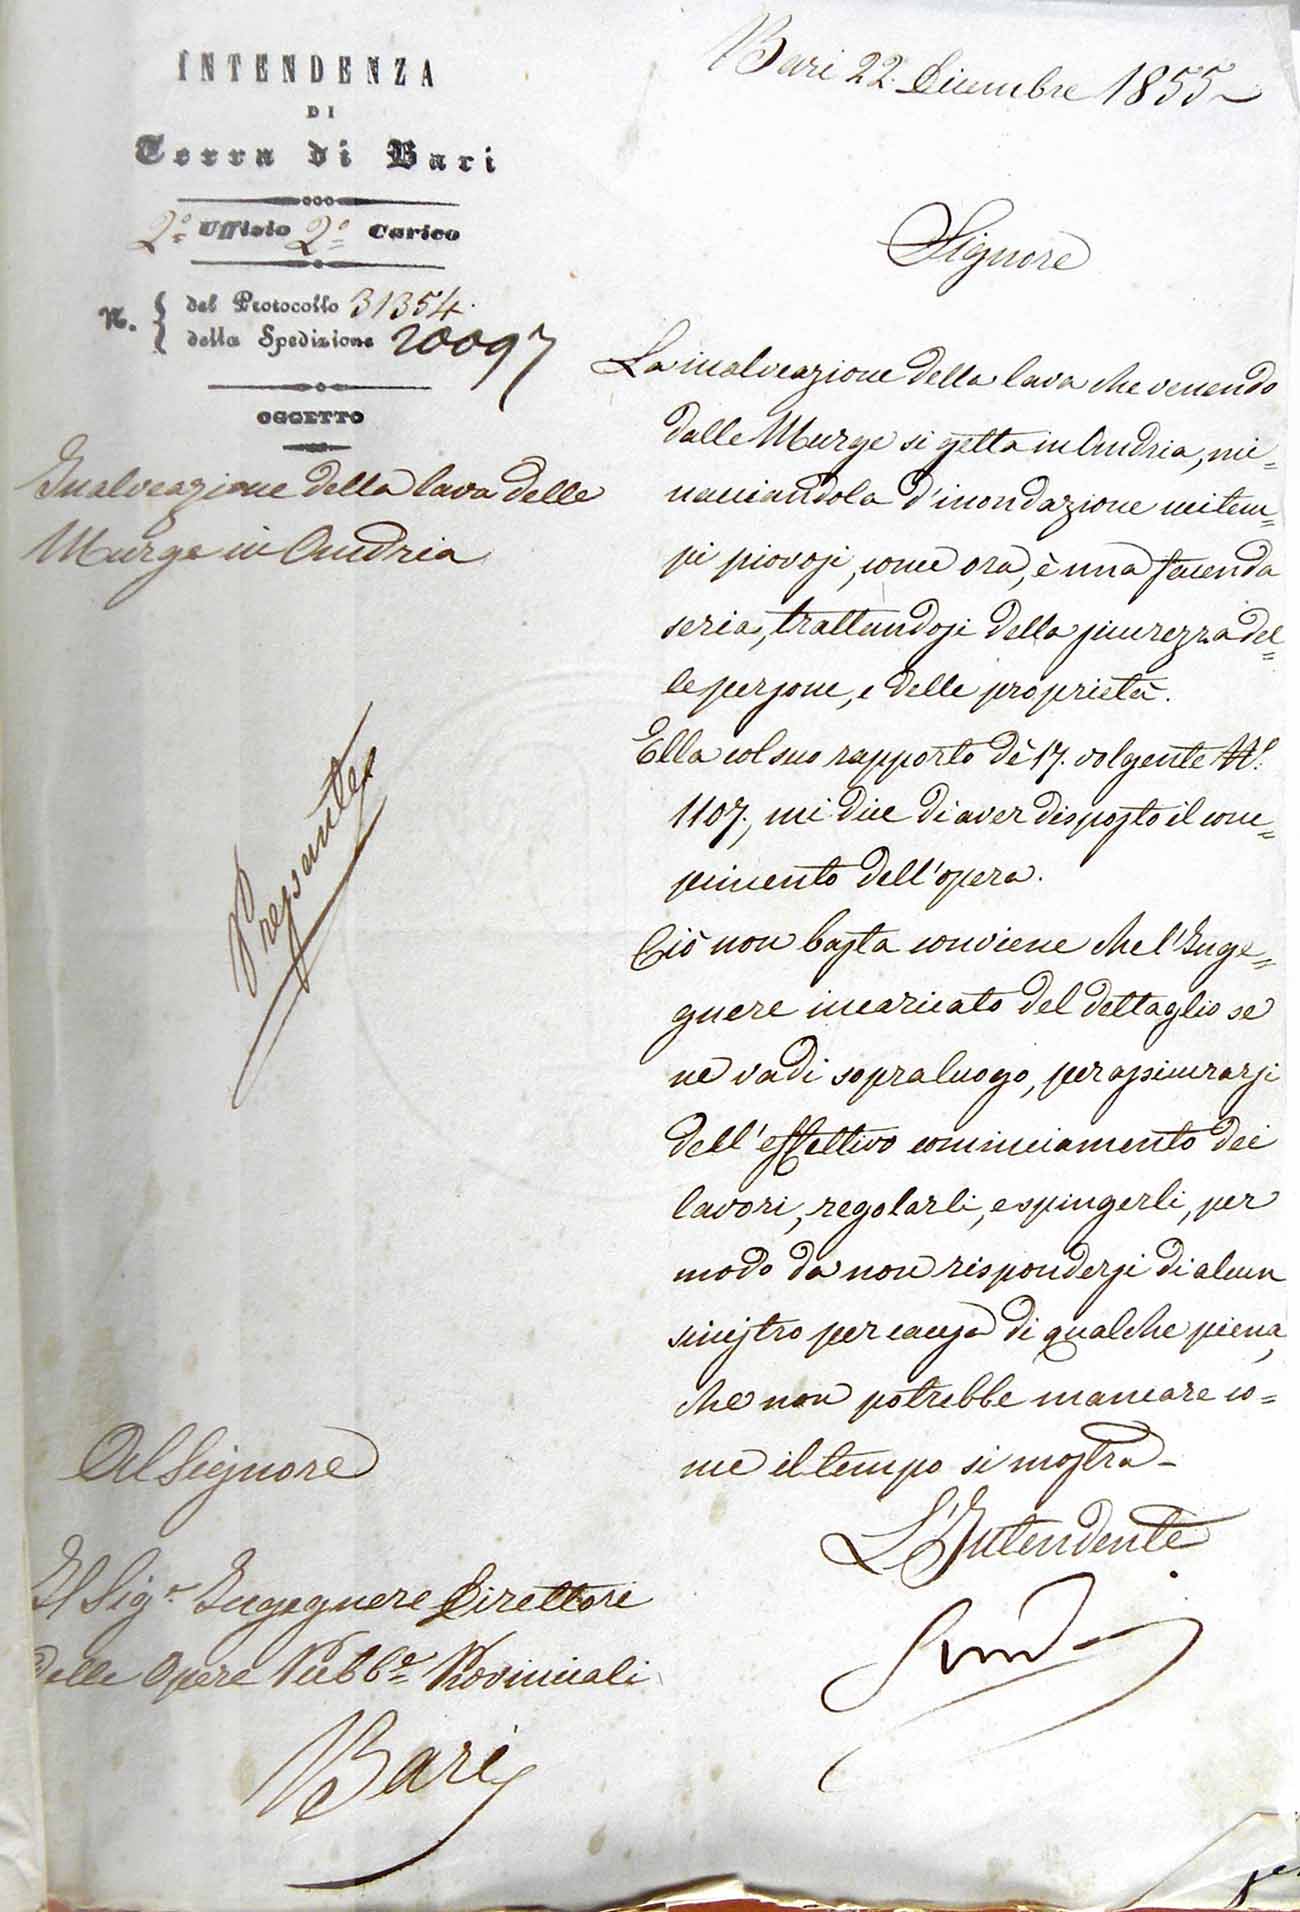 INTENDENZA
DI
Terra di Bari
2.º Uffizio 2.º Carico
N. { del Protocollo 31354.
della Spedizione 20097
OGGETTO
Inalveazione della lava delle
Murge in Andria
Pressante
Al Signore
Il Sig.r Ingegnere Direttore
delle Opere Pubb.e Provinciali
Bari
Bari 22 Dicembre 1855
Signore
La inalveazione della lava che venendo
dalle Murge si getta in Andria, mi=
nacciandola d'inondazione nei tem=
pi piovosi, come ora, è una facenda
seria, trattandosi della sicurezza del=
le persone, e delle proprietà.
Ella col suo rapporto de' 17. volgente N.º
1107, mi dice di aver disposto il com=
pimento dell'opera.
Ciò non basta conviene che l'Inge=
gnere incaricato del dettaglio se
ne vadi sopraluogo, per assicurarsi
dell'effettivo cominciamento dei
lavori, regolarli, e spingerli, per
modo da non rispondersi di alcun
sinistro per causa di qualche piena,
che non potrebbe mancare co=
me il tempo si mostra_
L'Intendente